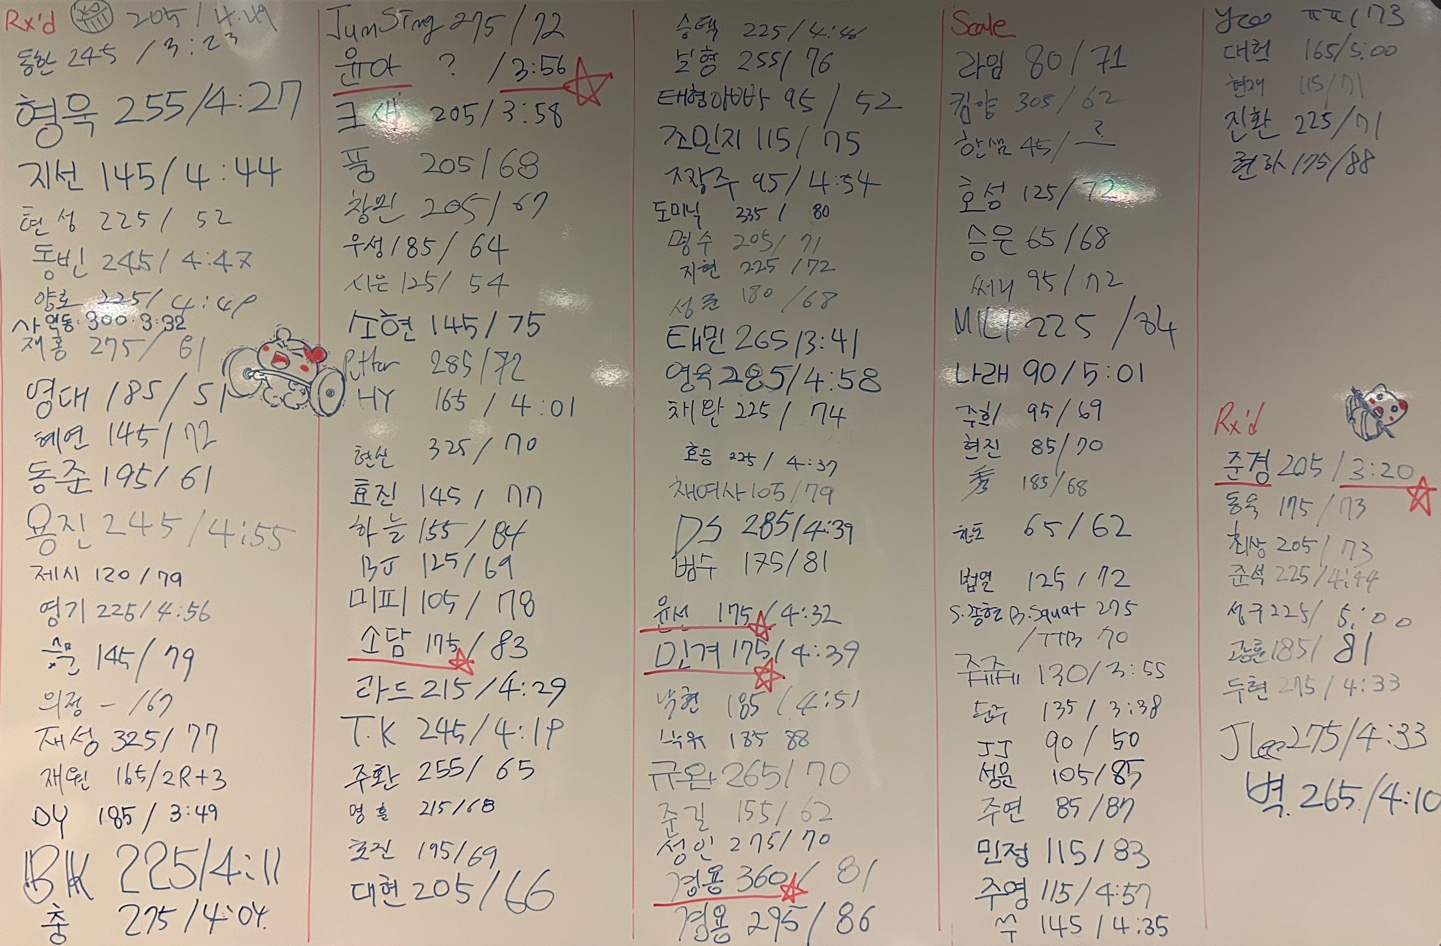 Rx'd 205/4:49
동한 245/3:23
형욱 255/4:27
지선 145/4:44
현성 225/52
동빈 245/4:47
양로 225/4:49
사원동 300 3:32
재홍 275/61
영대 185/51
혜연 145/72
동준 195/61
용진 245/4:55
제시 120/79
영기 225/4:56
145/79
의정 - /67
재성 325/77
재원 165/2R+3
DY 185/3:49
BK 225/4:11
충 275/4:04
JunSing 275/72
윤아 ? /3:56
크새 205/3:58
풍 205/68
창원 205/67
우성 185/64
시은 125/54
소현 145/75
285/72
HY 165/4:01
현산 325/70
효진 145/77
하늘 155/84
BJ 125/69
미피 105/78
소담 175/83
라드 215/4:29
T.K 245/4:19
주환 255/65
명훈 215/68
호진 195/69
대현 205/66
승택 225/4:46
보형 255/76
태형아빠 95/52
조민지 115/75
짱주 95/4:54
도미닉 235/80
명수 205/71
지현 225/72
성준 180/68
태민 265/3:41
영욱 285/4:58
채완 225/74
호등 225/4:37
채여사 105/79
DS 285/4:39
범수 175/81
윤선 175/4:32
민경 175/4:39
낙현 185/4:51
135 88
규완 265/70
준길 155/62
성인 275/70
경용 360/81
경용 295/86
Scale
라임 80/71
킴양 305/62
한샘 45/?
호성 125/72
승은 65/68
써니 95/72
MILI 225/84
나래 90/5:01
주희 95/69
현진 85/70
秀 185/68
65/62
법열 125/72
S.종현 B.Squat 275
/TTB 70
쥬쥬 130/3:55
135/3:38
JJ 90/50
성문 105/85
주연 85/87
민정 115/83
주영 115/4:57
쑤 145/4:35
Yeoo ㅠㅠ/73
대혁 165/5:00
현재 115/71
진환 225/71
현하 175/88
Rx'd
준경 205/3:20
동욱 175/73
최상 205/73
준석 225/4:44
성구 225/5:00
고훈 185/81
두현 275/4:33
JLee 275/4:33
벽. 265/4:10